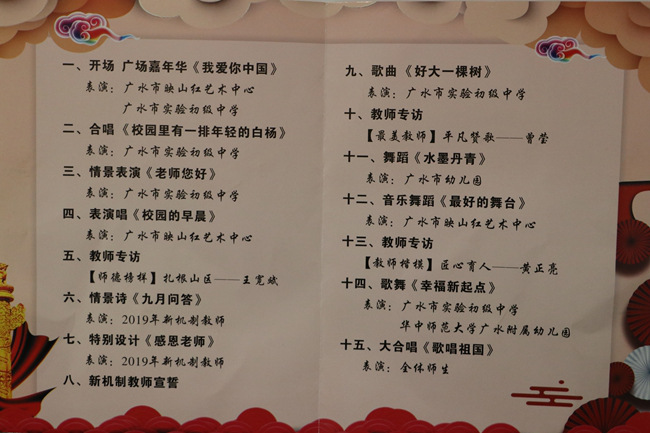 一、开场 广场嘉年华《我爱你中国》
表演：广水市映山红艺术中心
广水市实验初级中学
二、合唱《校园里有一排年轻的白杨》
表演：广水市实验初级中学
三、情景表演《老师您好》
表演：广水市实验初级中学
四、表演唱《校园的早晨》
表演：广水市映山红艺术中心
五、教师专访
【师德榜样】扎根山区——王宽斌
六、情景诗《九月问答》
表演：2019年新机制教师
七、特别设计《感恩老师》
表演：2019年新机制教师
八、新机制教师宣誓
九、歌曲《好大一棵树》
表演：广水市实验初级中学
十、教师专访
【最美教师】平凡赞歌——曾莹
十一、舞蹈《水墨丹青》
表演：广水市幼儿园
十二、音乐舞蹈《最好的舞台》
表演：广水市映山红艺术中心
十三、教师专访
【教师楷模】匠心育人——黄正亮
十四、歌舞《幸福新起点》
表演：广水市实验初级中学
华中师范大学广水附属幼儿园
十五、大合唱《歌唱祖国》
表演：全体师生